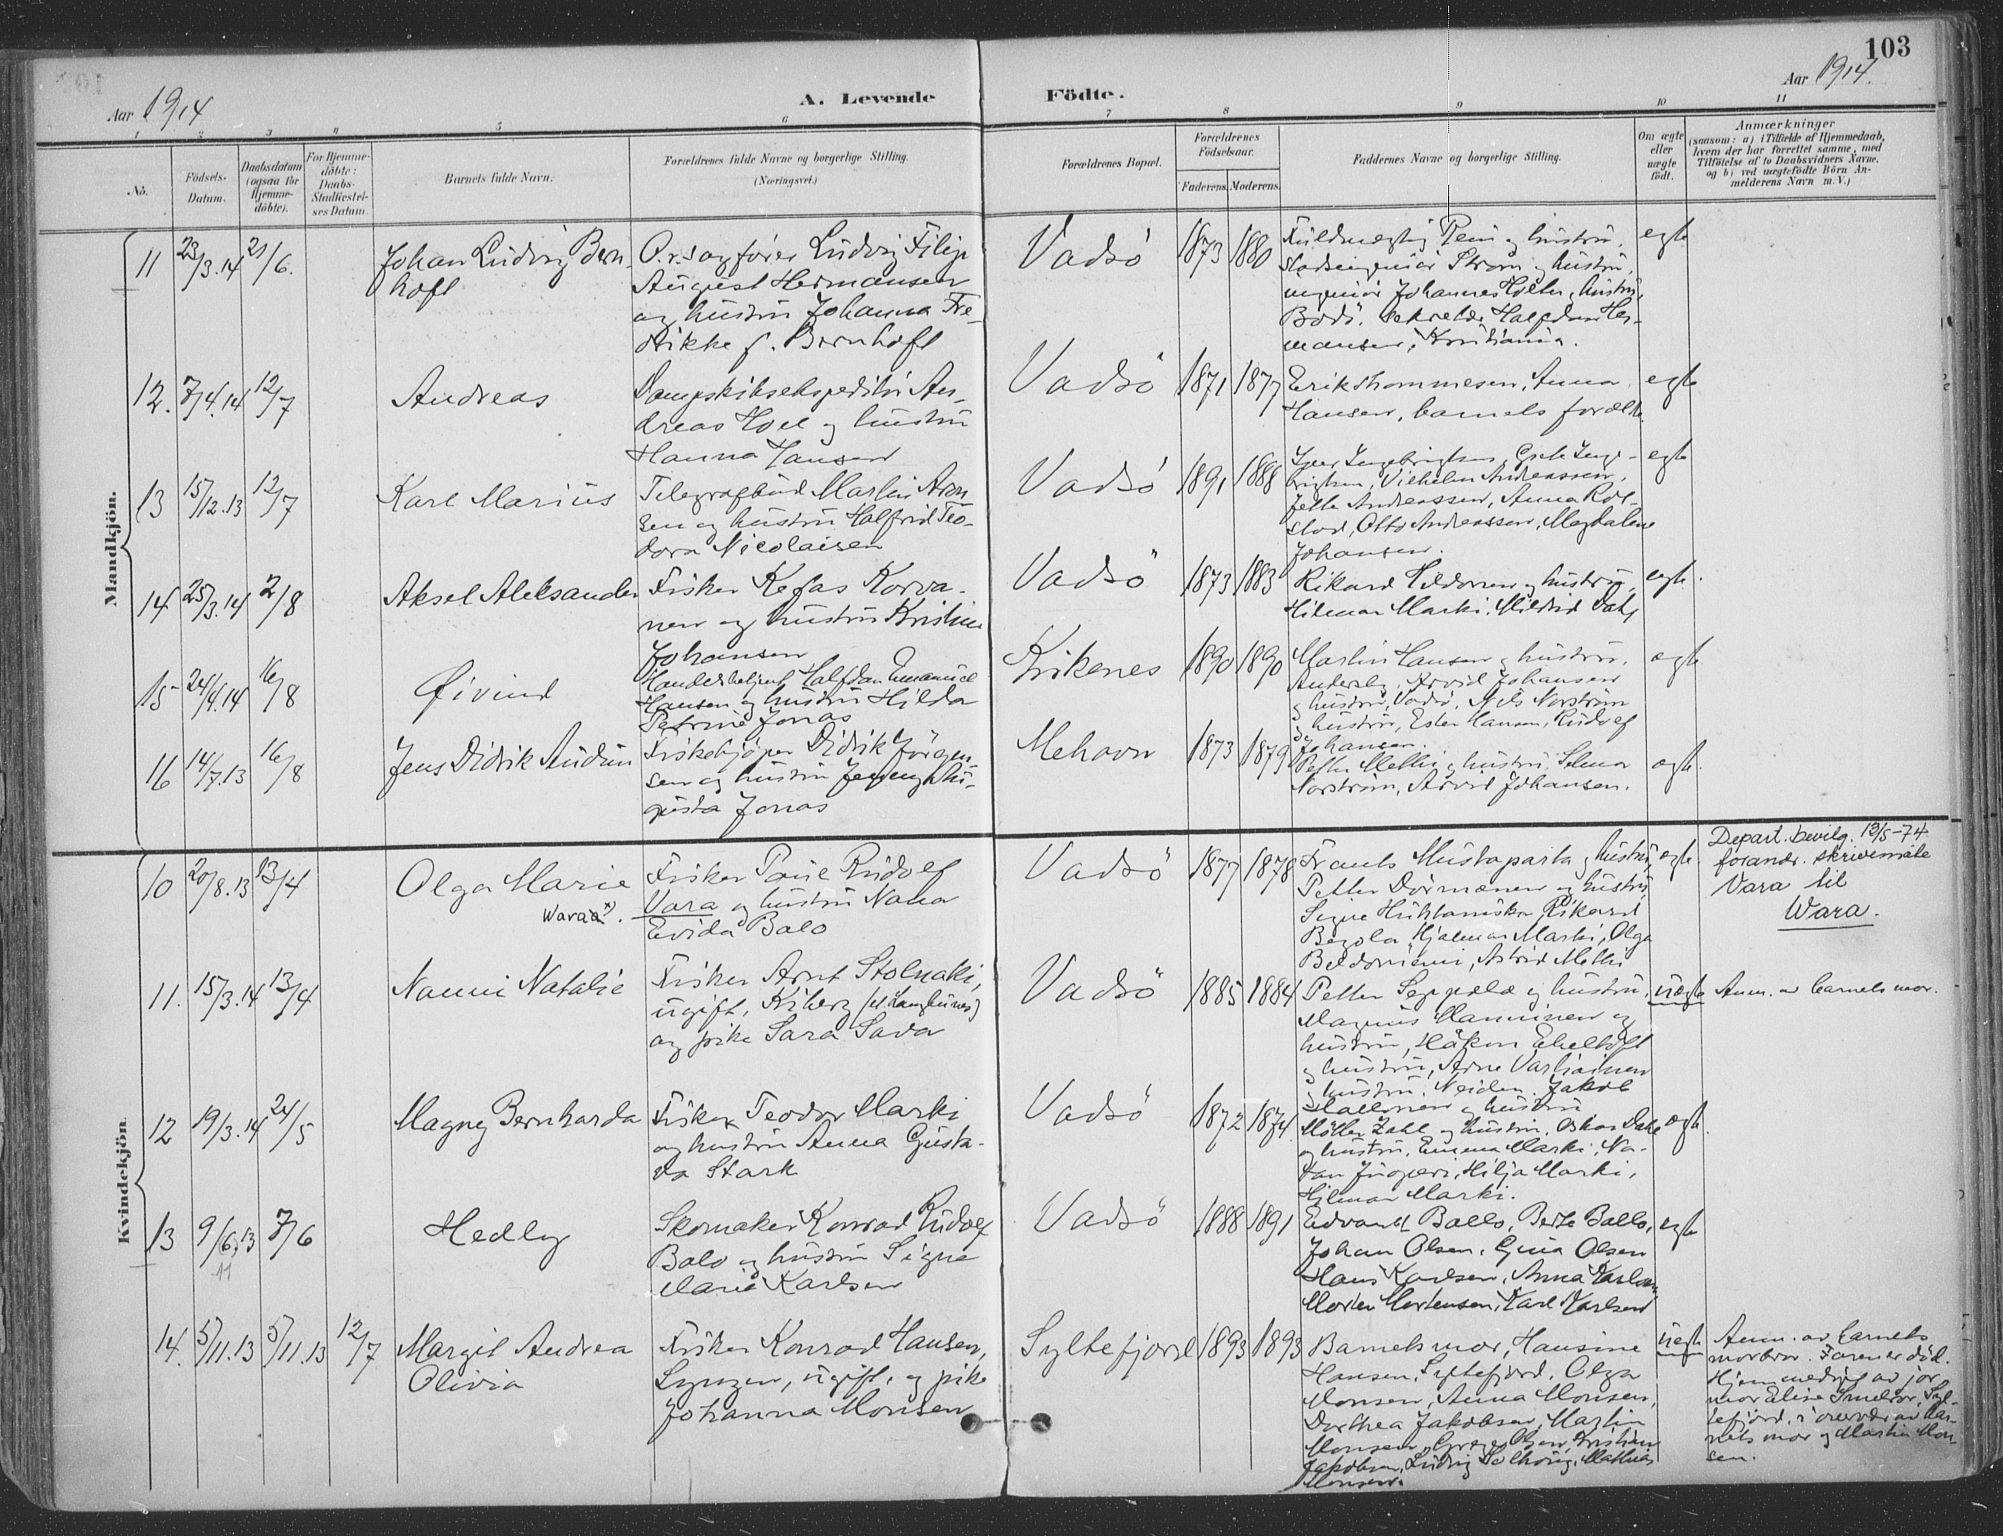 103
Aar 1914
A. Levende Födte.
Aar 1914.
1 2 3 4 5 6 7 8 9 10 11
No.
Födsels-
Datum.
Daabsdatum
(ogsaa for
Hjemme-
döbte).
For Hjemme-
döbte:
Daabs-
Stadfæstel-
ses Datum.
Barnets fulde Navn.
Forældrenes fulde Navne og borgerlige Stilling.
(Næringsvei.)
Forældrenes Bopæl.
Forældrenes
Födselsaar.
Faderens. Moderens.
Faddernes Navne og borgerlige Stilling.
Om ægte
eller
uægte
födt.
Anmærkninger
(saasom: a) i Tilfælde af Hjemmedaab,
hvem der har forrettet samme, med
Tilföielse af to Daabsvidners Navne,
og b) ved uægtefödte Börn An-
melderens Navn m. V.)
Mandkjön.
11 23/3.14 21/6.
Johan Ludvig Bern-
hoft
O.r.sagförer Ludvig Filip
August Hermansen
og hustru Johanna Fre-
drikke f. Bernhoft
Vadsö 1873 1880
Fuldmægtig og hustru,
Stadsingeniör Ström og hustru,
ingeniör Johannes Holter, hustru,
Bodö. Sekretær Halfdan Her-
mansen, Kristiania.
egte
12. 7/4.14 12/7
Andreas
Dampskibsekspeditör An-
dreas Hoel og hustru
Hanna Hansen
Vadsö 1871 1877
Erik Thommesen, Anna
Hansen, barnets foræld.
egte
13 15/12.13 12/7
Karl Marius
Telegrafbud Martin Aron
sen og hustru Halfrid Teo-
dora Nicolaisen
Vadsö 1891 1888
Iver Ingebrigtsen, Inge-
brigtsen, Vilhelm Andreassen,
Jette Andreassen, Anna Rol-
stad, Otto Andreassen, Magdalene
Johansen.
egte
14 25/3.14 2/8
Aksel Aleksander
Fisker Kefas Korva-
nen og hustru Kristine
Johansen
Vadsö 1873 1883
Rikard og hustru,
Hilmar Marki, Mildrid Dahl
egte.
15 24/4.14 16/8
Øivind
Handelsbetjent Halfdan Emanuel
Hansen og hustru Hilda
Petrine Jonas
Kirkenes 1890 1890
Martin Hansen og hustru,
Andersby, Arvid Johansen
og hustru, Vadsö, Nils Norström
og hustru, Ester Hansen, Rudolf
Johansen.
egte
16 14/7.13 16/8
Jens Didrik Audun
Fiskekjöper Didrik Jörgen-
sen og hustru Jenny Au-
gusta Jonas
Mehavn 1873 1879
Petter Methi og hustru, Selma
Norström, Arvid Johansen.
egte.
Kvindekjön.
10 20/8.13 13/4
Olga Marie
Waraa x).
Fisker Paul Rudolf
Vara og hustru Nanna
Evida Balo
Vadsö 1877 1878
Frants Mustaparta og hustru,
Petter Dörmænen og hustru,
Signe Huhtaniska, Rikard
Bezola, Hjalmar Marki, Olga
Beldoniemi, Astrid Methi
egte.
Depart. bevilg. 13/5-74
forandr. skrivemåte
Vara til
Wara.
11. 15/3.14 13/4
Nanni Natalie
Fisker Arnt Stolnaki,
ugift, Kiberg (el. Langbunes)
og pike Sara Sava
Vadsö 1885 1884
Petter Seppælæ og hustru,
Magnus Manninen og
hustru, Håkon Eheltoft
og hustru, Arne Variainen
og hustru. Neiden. Jakob
Mallonen og hustru
uegte
Anm. av barnets mor.
12 19/3.14 24/5
Magny Bernharda
Fisker Teodor Marki
og hustru Anna Gusta-
va Stark
Vadsö 1872 1874
Möller Zahl og hustru, Oskar Dahl
og hustru, Emma Marki, Na-
tan Jugari, Hilja Marki,
Hilmar Marki.
egte.
13 9/6.13 7/6
11
Hedly
Skomaker Konrad Rudolf
Balo og hustru Signe
Marie Karlsen
Vadsö 1888 1891
Edvard Ballo, Berte Ballo,
Johan Olsen, Gina Olsen
Hans Karlsen, Anna Karlsen
Morten Mortensen, Karl Karlsen
egte
14. 5/11.13 5/11.13 12/7
Margit Andrea
Olivia
Fisker Konrad Hansen,
Lyngen, ugift, og pike
Johanna Monsen
Syltefjord 1893 1893
Barnets mor, Hansine
Hansen, Syltefjord, Olga
Monsen, Anna Monsen,
Dorthea Jakobsen, Martin
Monsen, Olsen, Kristian
Jakobsen, Ludvig Solhaug, Mathias
Monsen.
uegte
Anm. av barnets
morbror. Faren er död.
Hjemmedöpt av jor-
mor Elise Smelror, Syl-
tefjord, i overvær av bar-
nets mor og Martin Mon-
sen.